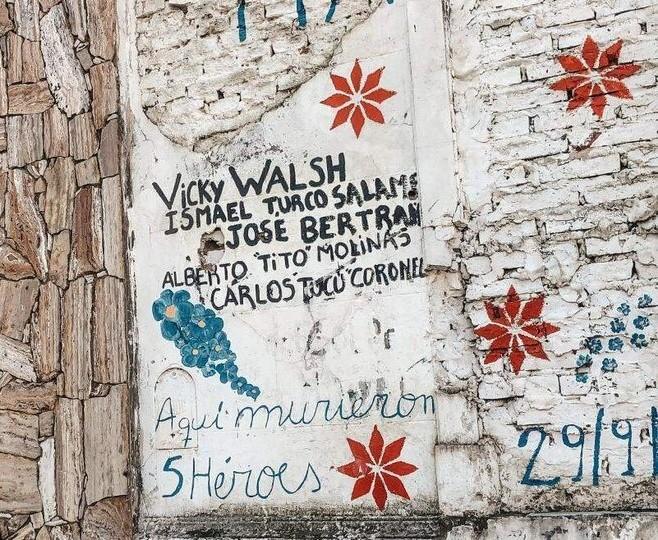 VICKY WALSH
ISMAEL TURCO SALAME
JOSÉ BERTRAN
ALBERTO "TITO" MOLINAS
CARLOS TUCU CORONEL
Aquí murieron
5 Héroes
29/9/